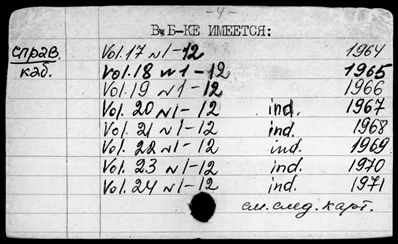 -4-
В Б-КЕ ИМЕЕТСЯ:
справ. Vol. 17 N 1-12 1964
каб. Vol. 18 N 1-12 1965
Vol. 19 N 1-12 1966
Vol. 20 N 1-12 ind. 1967
Vol. 21 N 1-12 ind. 1968
Vol. 22 N 1-12 ind. 1969
Vol. 23 N 1-12 ind. 1970
Vol. 24 N 1-12 ind. 1971
см. след. карт.